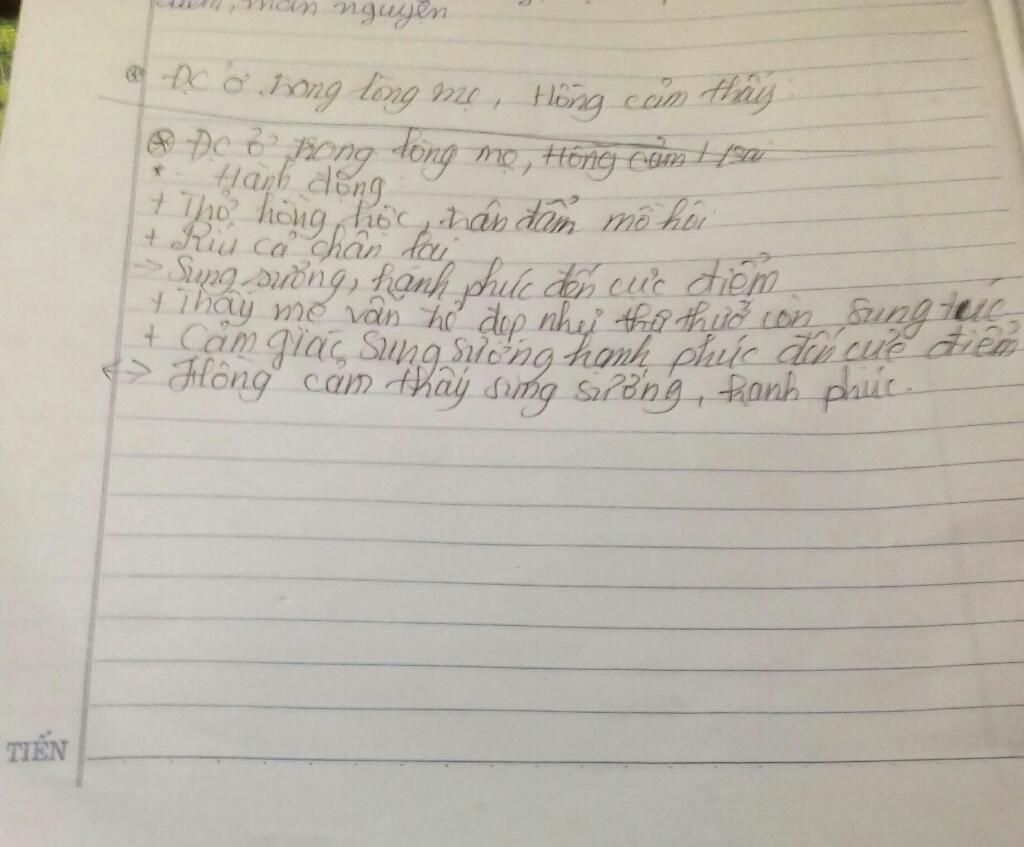 mãn nguyện
⊛ ĐC ở trong lòng mẹ, Hồng cảm thấy
⊛ ĐC ở trong lòng mẹ, Hồng cảm
* Hành động
+ Thở hồng hộc, trán đẫm mồ hôi
+ Ríu cả chân lại
-> Sung sướng, hạnh phúc đến cực điểm
+ Thấy mẹ vẫn trẻ đẹp như thở thuở còn sung túc
+ Cảm giác sung sướng hạnh phúc đến cực điểm
<-> Hồng cảm thấy sung sướng, hạnh phúc.
TIẾN